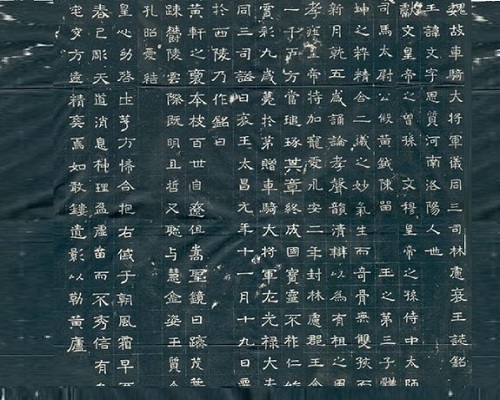 魏故車騎大將軍儀同三司林慮哀王誌銘
王諱文字思質河南洛陽人也
獻文皇帝之曾孫 文穆皇帝之孫侍中太師
司馬太尉公假黃鉞陳留 王之第三子體
坤之粹精合二儀之妙氣生而奇骨無雙孩而
新月就五歲誦論孝聲韻清辯以為有祖之風
孝莊皇帝特加寵愛永安二年封林慮郡王食
一千百方當琢其章終成國寶靈不祚仁
賓彩九歲薨於第贈車騎大將軍左光祿大夫
同三司謚曰哀王太昌元年十一月十九日窆
於西陵乃作銘曰
黃軒之裔本枝百世自徂嵩聖鏡日躋茂葉
踈鬱陵雲際既明且哲又聰与慧金姿玉質令
孔昭愛結
皇心乃啓土茅方憘合抱右于朝風霜早
春已彫天道消息理盈虛苗而不秀信有
宅夕方遼精焉如敢鐫遺影以勒黃廬